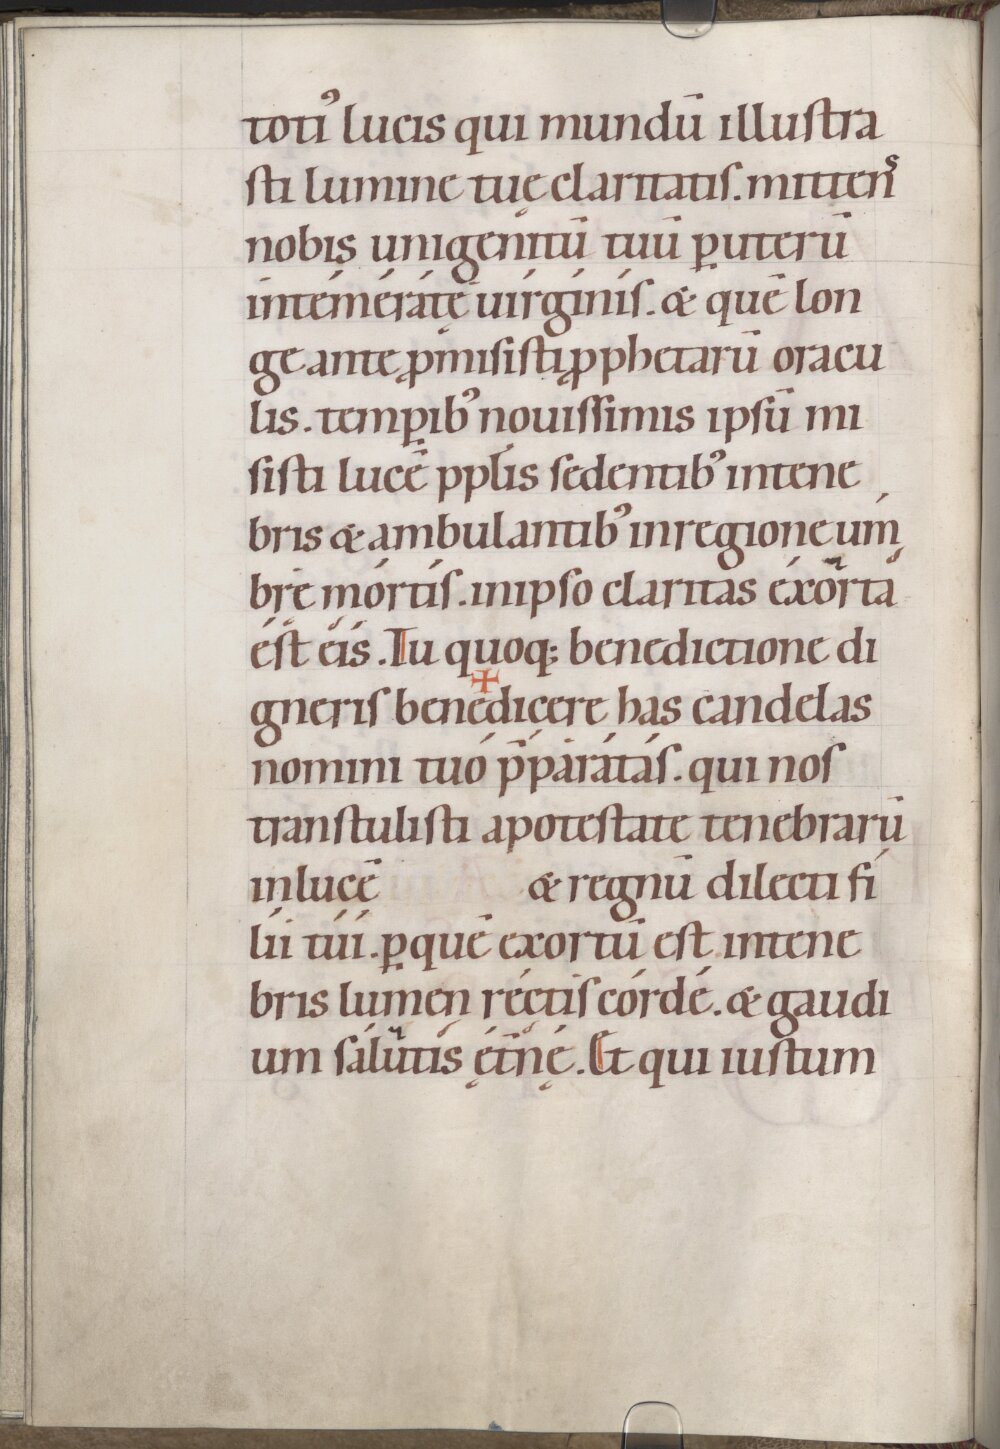 totꝰ lucis qui mundū illustra
sti lumine tuę claritatis. mittens
nobis unigenitū tuū ꝑ uterū
intemeratę uirginis. & quē lon
ge ante ꝓmisisti ꝓphetarū oracu
lis. tempibꝰ nouissimis ipsū mi
sisti lucē pplis sedentibꝰ intene
bris & ambulantibꝰ inregione um
brę mortis. inipso claritas exorta
est eis. Tu quoq; benedictione di
gneris bene✝dicere has candelas
nomini tuo p̄paratas. qui nos
transtulisti apotestate tenebrarū
inlucē & regnū dilecti fi
lii tui. ꝑ quē exortū est intene
bris lumen rectis corde. & gaudi
um salutis ęt̄nę. Et qui iustum